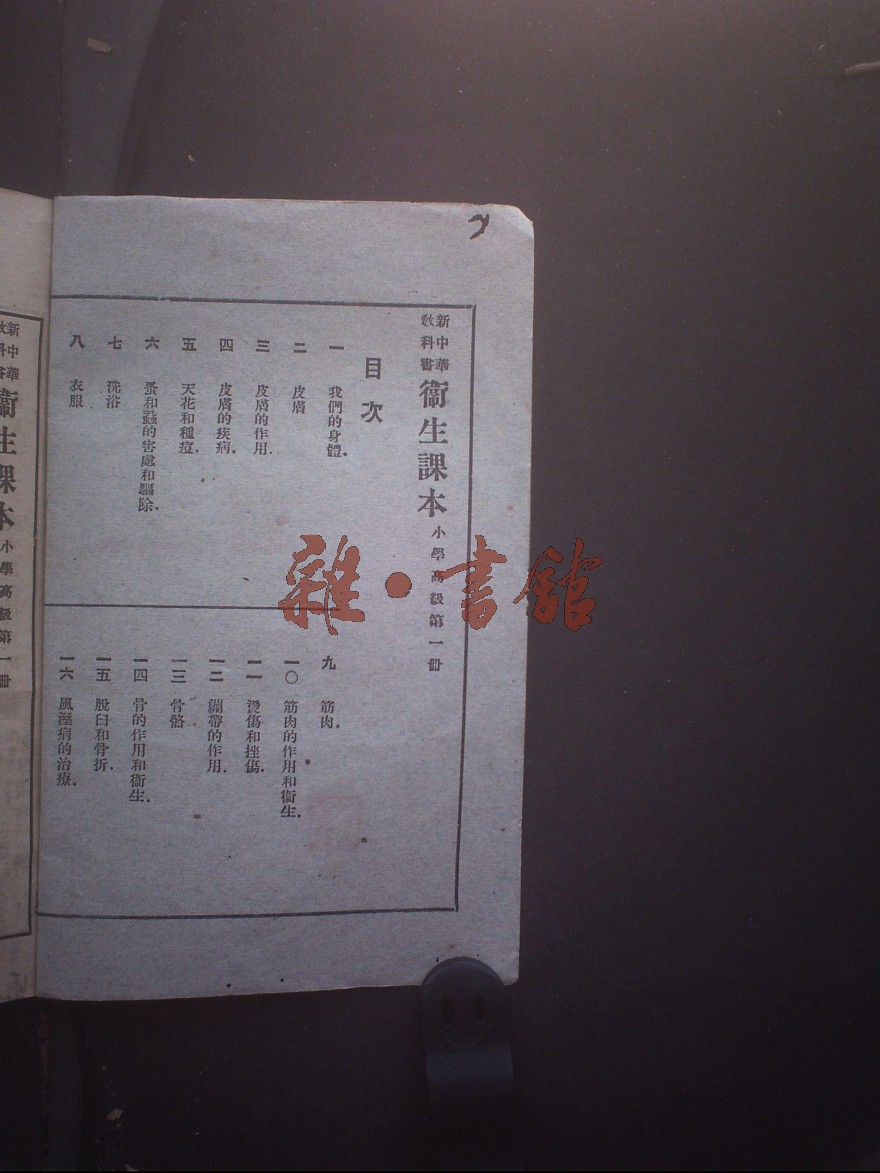 新中華
教科書
衞生課本
小學高級第一冊
目次
一 我們的身體.
二 皮膚
三 皮膚的作用.
四 皮膚的疾病.
五 天花和種痘.
六 蚤和蝨的害處和驅除.
七 洗浴
八 衣服
九 筋肉.
一〇 筋肉的作用和衞生.
一一 燙傷和挫傷.
一二 繃帶的作用.
一三 骨骼
一四 骨的作用和衞生.
一五 脫臼和骨折.
一六 風溼病的治療.
新中華
教科書
衞生課本
小學高級第一冊
雜·書館